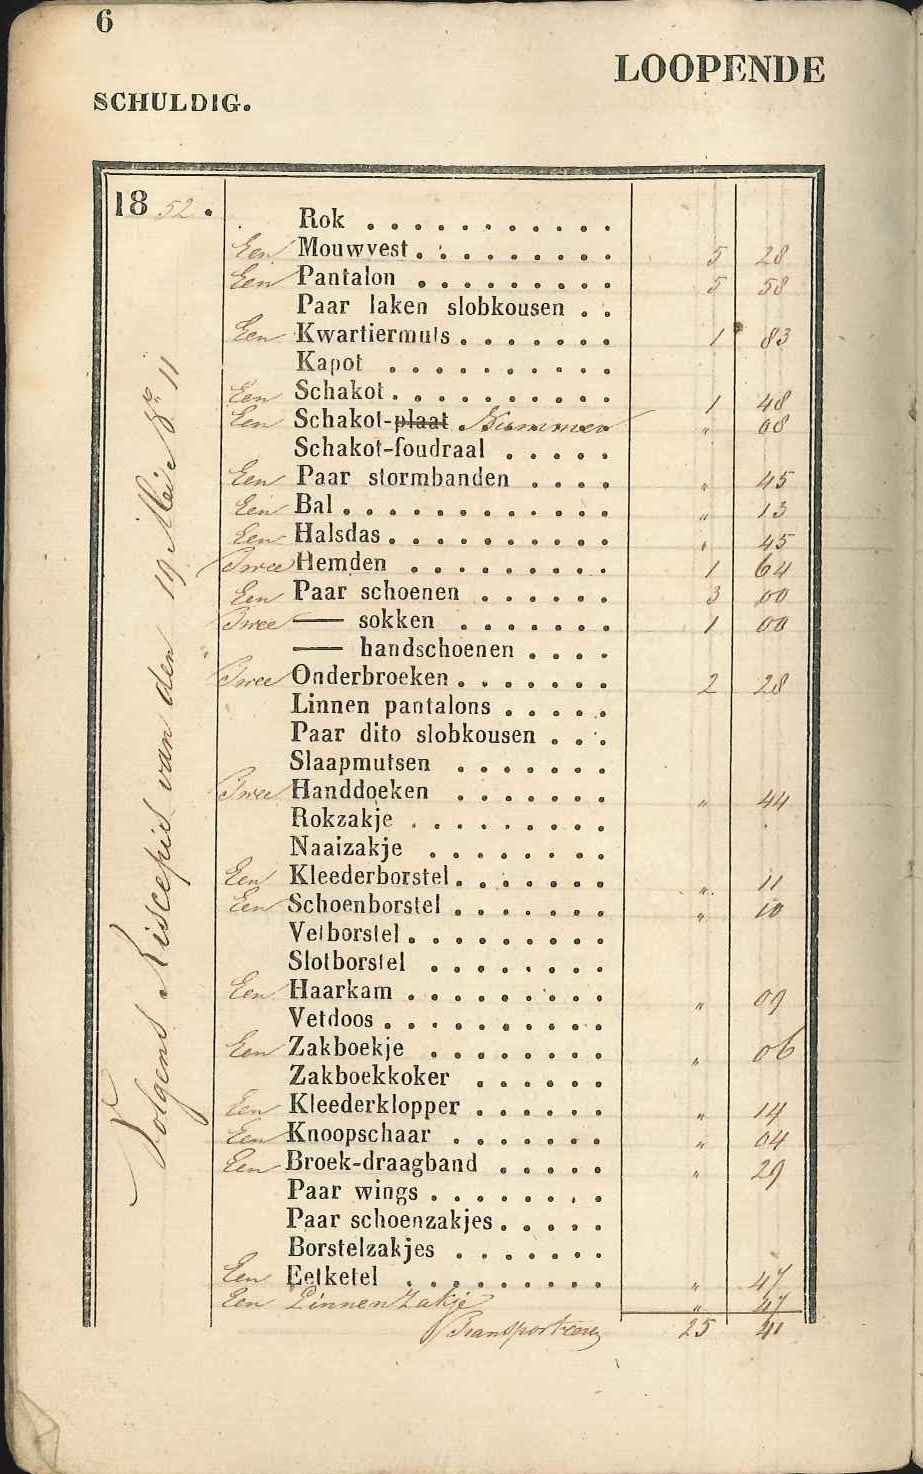 6
LOOPENDE
SCHULDIG.
1852.
Volgens Rescepis van den 19 Mei No 11
Rok . . . . . . . . . . .
Een Mouwvest . . . . . . . . . 5 28
Een Pantalon . . . . . . . . . 5 58
Paar laken slobkousen . .
Een Kwartiermuts . . . . . . . 1 83
Kapot . . . . . . . . . .
Een Schakot . . . . . . . . . . 1 48
Een Schakot-plaat Nummer " 08
Schakot-foudraal . . . . .
Een Paar stormbanden . . . . " 45
Een Bal . . . . . . . . . . . . " 13
Een Halsdas . . . . . . . . . . " 45
Twee Hemden . . . . . . . . . 1 64
Een Paar schoenen . . . . . . 3 00
Twee — sokken . . . . . . . 1 00
— handschoenen . . . .
Twee Onderbroeken . . . . . . . 2 28
Linnen pantalons . . . . .
Paar dito slobkousen . . .
Slaapmutsen . . . . . . .
Twee Handdoeken . . . . . . . " 44
Rokzakje . . . . . . . . .
Naaizakje . . . . . . . .
Een Kleederborstel . . . . . . . " 11
Een Schoenborstel . . . . . . . " 10
Vetborstel . . . . . . . . .
Slotborstel . . . . . . . .
Een Haarkam . . . . . . . . . " 09
Vetdoos . . . . . . . . . .
Een Zakboekje . . . . . . . . " 06
Zakboekkoker . . . . . .
Een Kleederklopper . . . . . . " 14
Een Knoopschaar . . . . . . . " 04
Een Broek-draagband . . . . . " 29
Paar wings . . . . . . . .
Paar schoenzakjes . . . . .
Borstelzakjes . . . . . . .
Een Eetketel . . . . . . . . . " 47
Een Linnen Zakje " 47
Transporteere 25 41